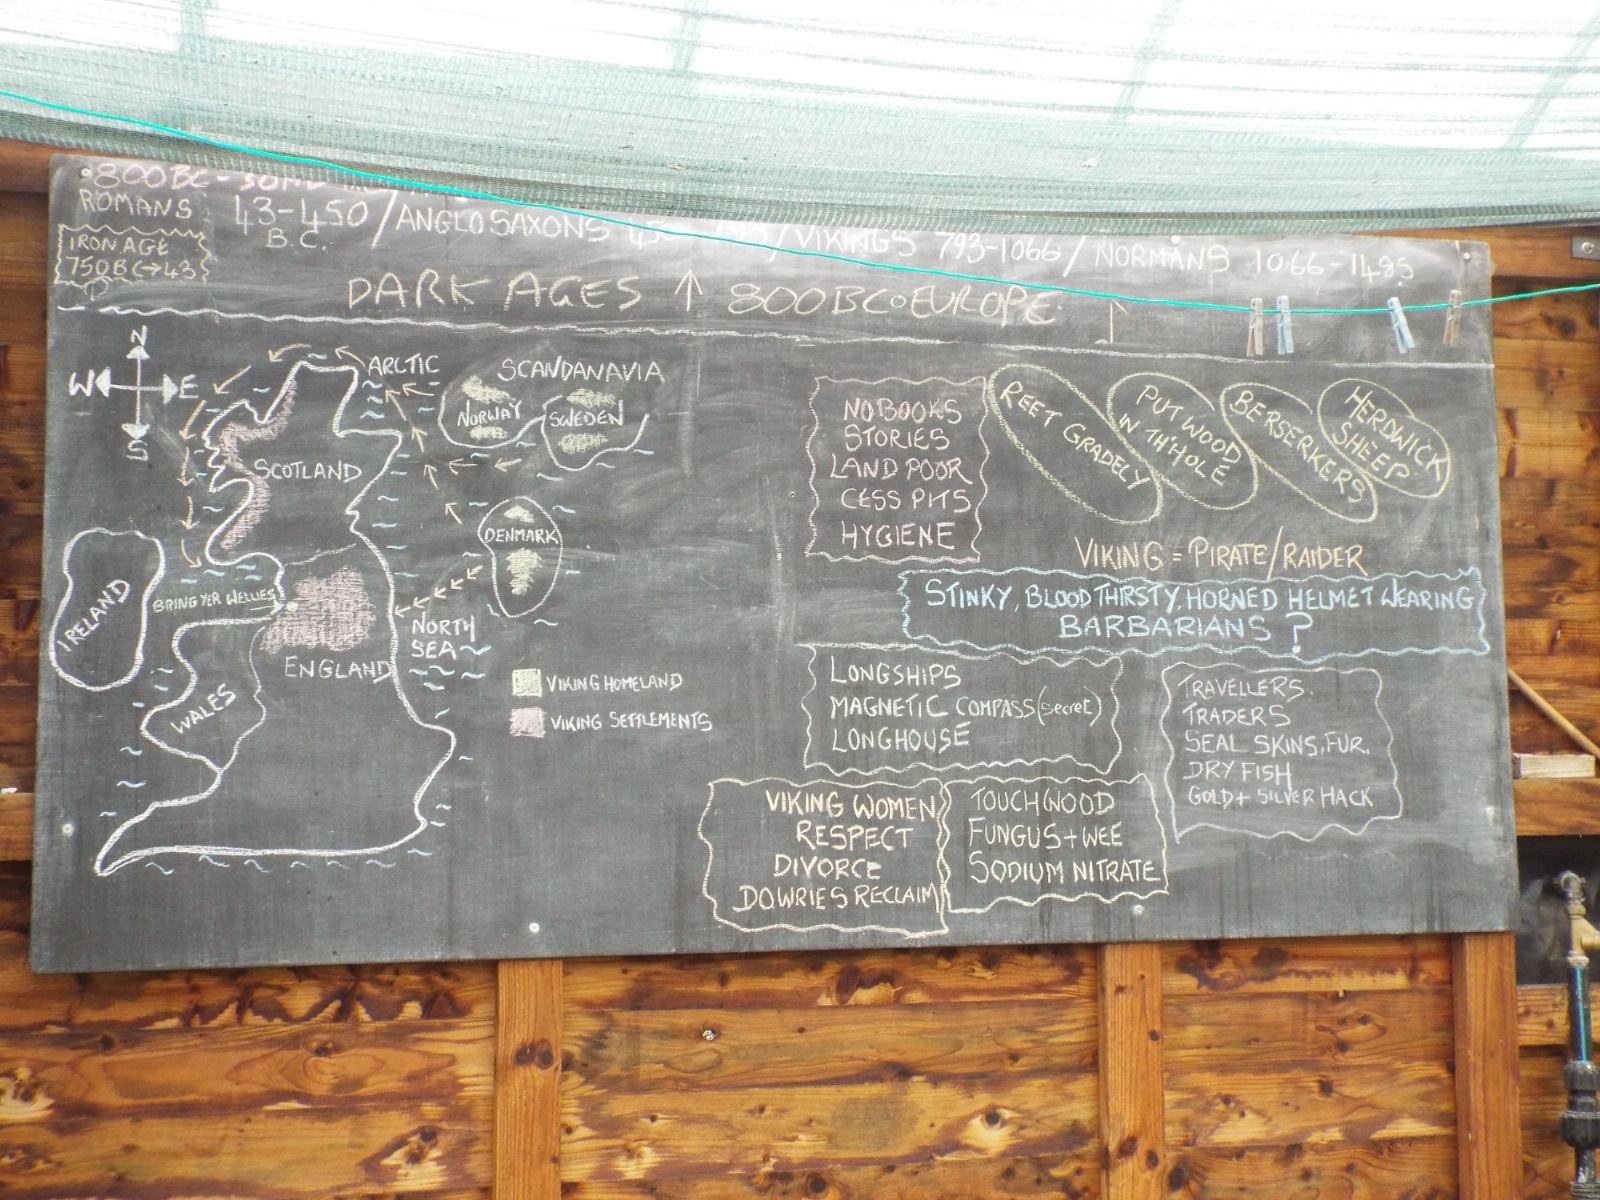 800BC-
ROMANS 43-450 / ANGLO SAXONS 450 793 / VIKINGS 793-1066 / NORMANS 1066-1485
B.C.
IRON AGE
750BC→43
DARK AGES ↑ 800BC○EUROPE
N
W E
S
ARCTIC
SCANDANAVIA
NORWAY
SWEDEN
SCOTLAND
DENMARK
IRELAND
BRING YER WELLIES
NORTH
SEA
ENGLAND
WALES
VIKING HOMELAND
VIKING SETTLEMENTS
NO BOOKS
STORIES
LAND POOR
CESS PITS
HYGIENE
REET GRADELY
PUT WOOD
IN TH'HOLE
BERSERKERS
HERDWICK
SHEEP
VIKING = PIRATE/RAIDER
STINKY, BLOODTHIRSTY, HORNED HELMET WEARING
BARBARIANS ?
LONGSHIPS
MAGNETIC COMPASS (secret)
LONGHOUSE
TRAVELLERS.
TRADERS
SEAL SKINS, FUR.
DRY FISH
GOLD + SILVER HACK
VIKING WOMEN
RESPECT
DIVORCE
DOWRIES RECLAIM
TOUCHWOOD
FUNGUS + WEE
SODIUM NITRATE